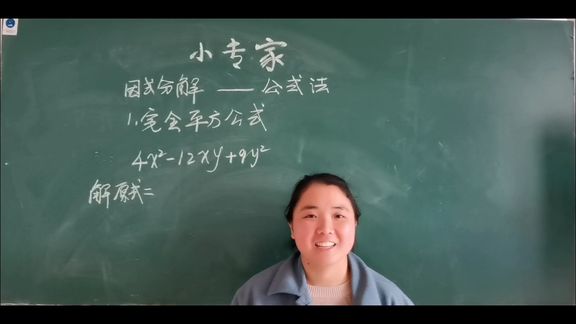 小专家
因式分解 —— 公式法
1.完全平方公式
4x²-12xy+9y²
解原式=